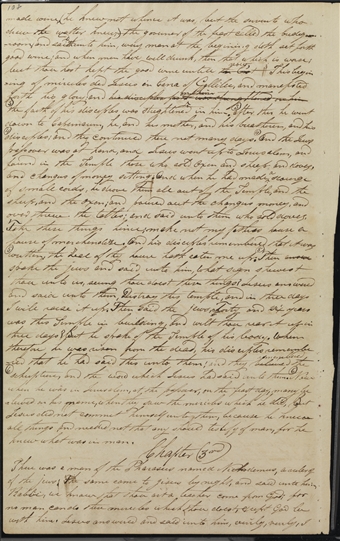 108
made wine, he knew not whence it was, but the servants who
drew the water knew, the governor of the feast called the bride
groom, and saith unto him, every man at the beginning doth set forth
good wine; and when men have well drunk, then that which is worse;
but thou hast kept the good wine until now This begin
ning of miracles did Jesus in Cana of Galilee, and manifested
forth his glory, and
the faith of his disciples was strengthened in him, After this he went
down to Capernaum, he, and his mother, and his brethren, and his
disciples; and they continued there not many days. And the Jews
passover was at hand, and Jesus went up to Jerusalem, and
found in the Temple those who sold oxen and sheep, and doves,
and changers of money sitting. And when he had made a scourge
of small cords, he drove them all out of the Temple, and the
sheep, and the oxen; and poured out the changers money, and
over threw the tables; and said unto them who sold doves,
Take these things hence; make not my fathers house a
house of merchandise. And his disciples remembered that it was
written, the zeal of thine house hath eaten me up. Then
spake the Jews and said unto him, what sign shewest
thou unto us, seeing thou doest these things? Jesus answered
and said unto them, Destroy this temple, and in three days
I will raise it up. Then said the Jews, forty and six years
was this Temple in building, and wilt thou rear it up in
three days? But he spake of the Temple of his body. When
therefore he was risen from the dead, his disciples remember
ed that he had said this unto them; and they believed the
scripture, and the word which Jesus had said unto them; Now
when he was in Jerusalem, at the passover, in the feast day, many be
lieved on his name, when they saw the miracles which he did. But
Jesus did not commit himself unto them, because he knew
all things, and needed not that any should testify of man; for he
knew what was in man.
Chapter 3rd
There was a man of the Pharisees named Nicodemus, a ruler
of the Jews; The same came to Jesus by night, and said unto him,
Rabbi, we know that thou art a teacher come from God; for
no man can do these miracles which thou doest, except God be
with him. Jesus answered and said unto him, verily, verily, I